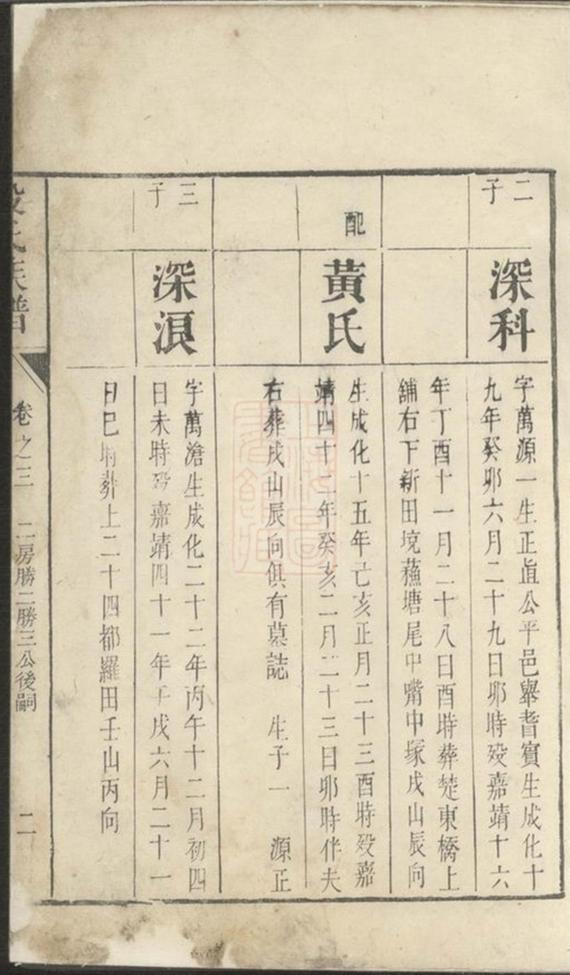 二子
深科
字萬源一生正直公平邑舉耆賓生成化十
九年癸卯六月二十九日卯時殁嘉靖十六
年丁酉十一月二十八日酉時葬楚東橋上
舖右下新田境蘓塘尾中嘴中塚戌山辰向
配
黃氏
生成化十五年亡亥正月二十三酉時殁嘉
靖四十二年癸亥二月二十三日卯時伴夫
右葬戌山辰向俱有墓誌 生子一 源正
三子
深浪
字萬滄生成化二十二年丙午十二月初四
日未時殁嘉靖四十一年壬戌六月二十一
日巳時葬上二十四都羅田壬山丙向
氏族譜
卷之三 二房勝二勝三公後嗣 二